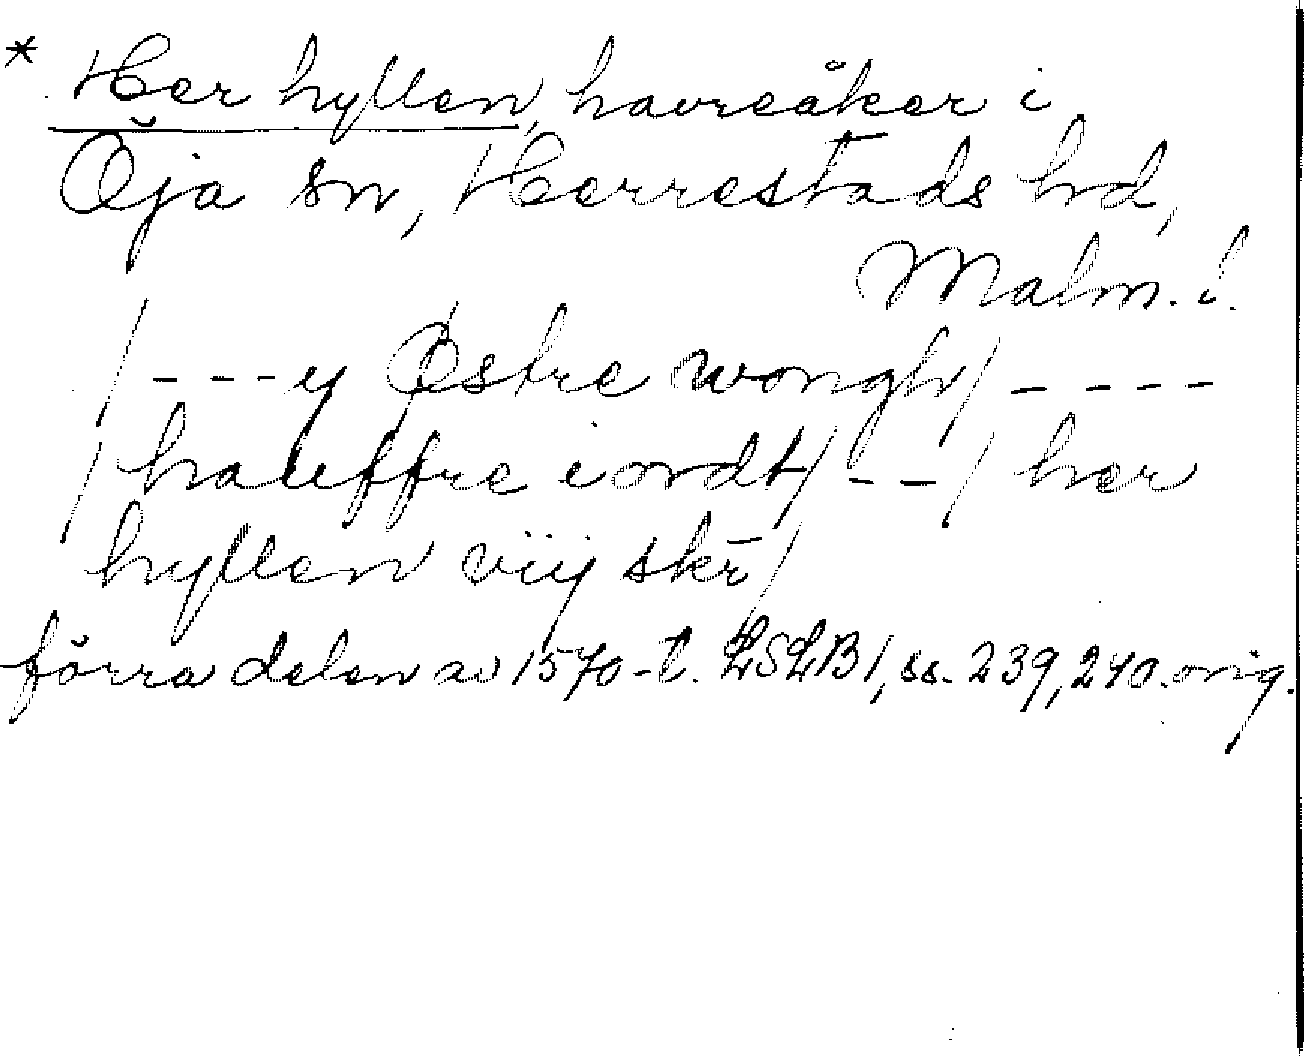 * Her hyllen, havreåker i
Öja sn, Herrestads hd,
Malm. l.
/---y Østre wongh/----
/hauffre iordt/--/ her
hyllen viij skr̄/
förra delen av 1570-t. LSLB1, ss. 239, 240. orig.